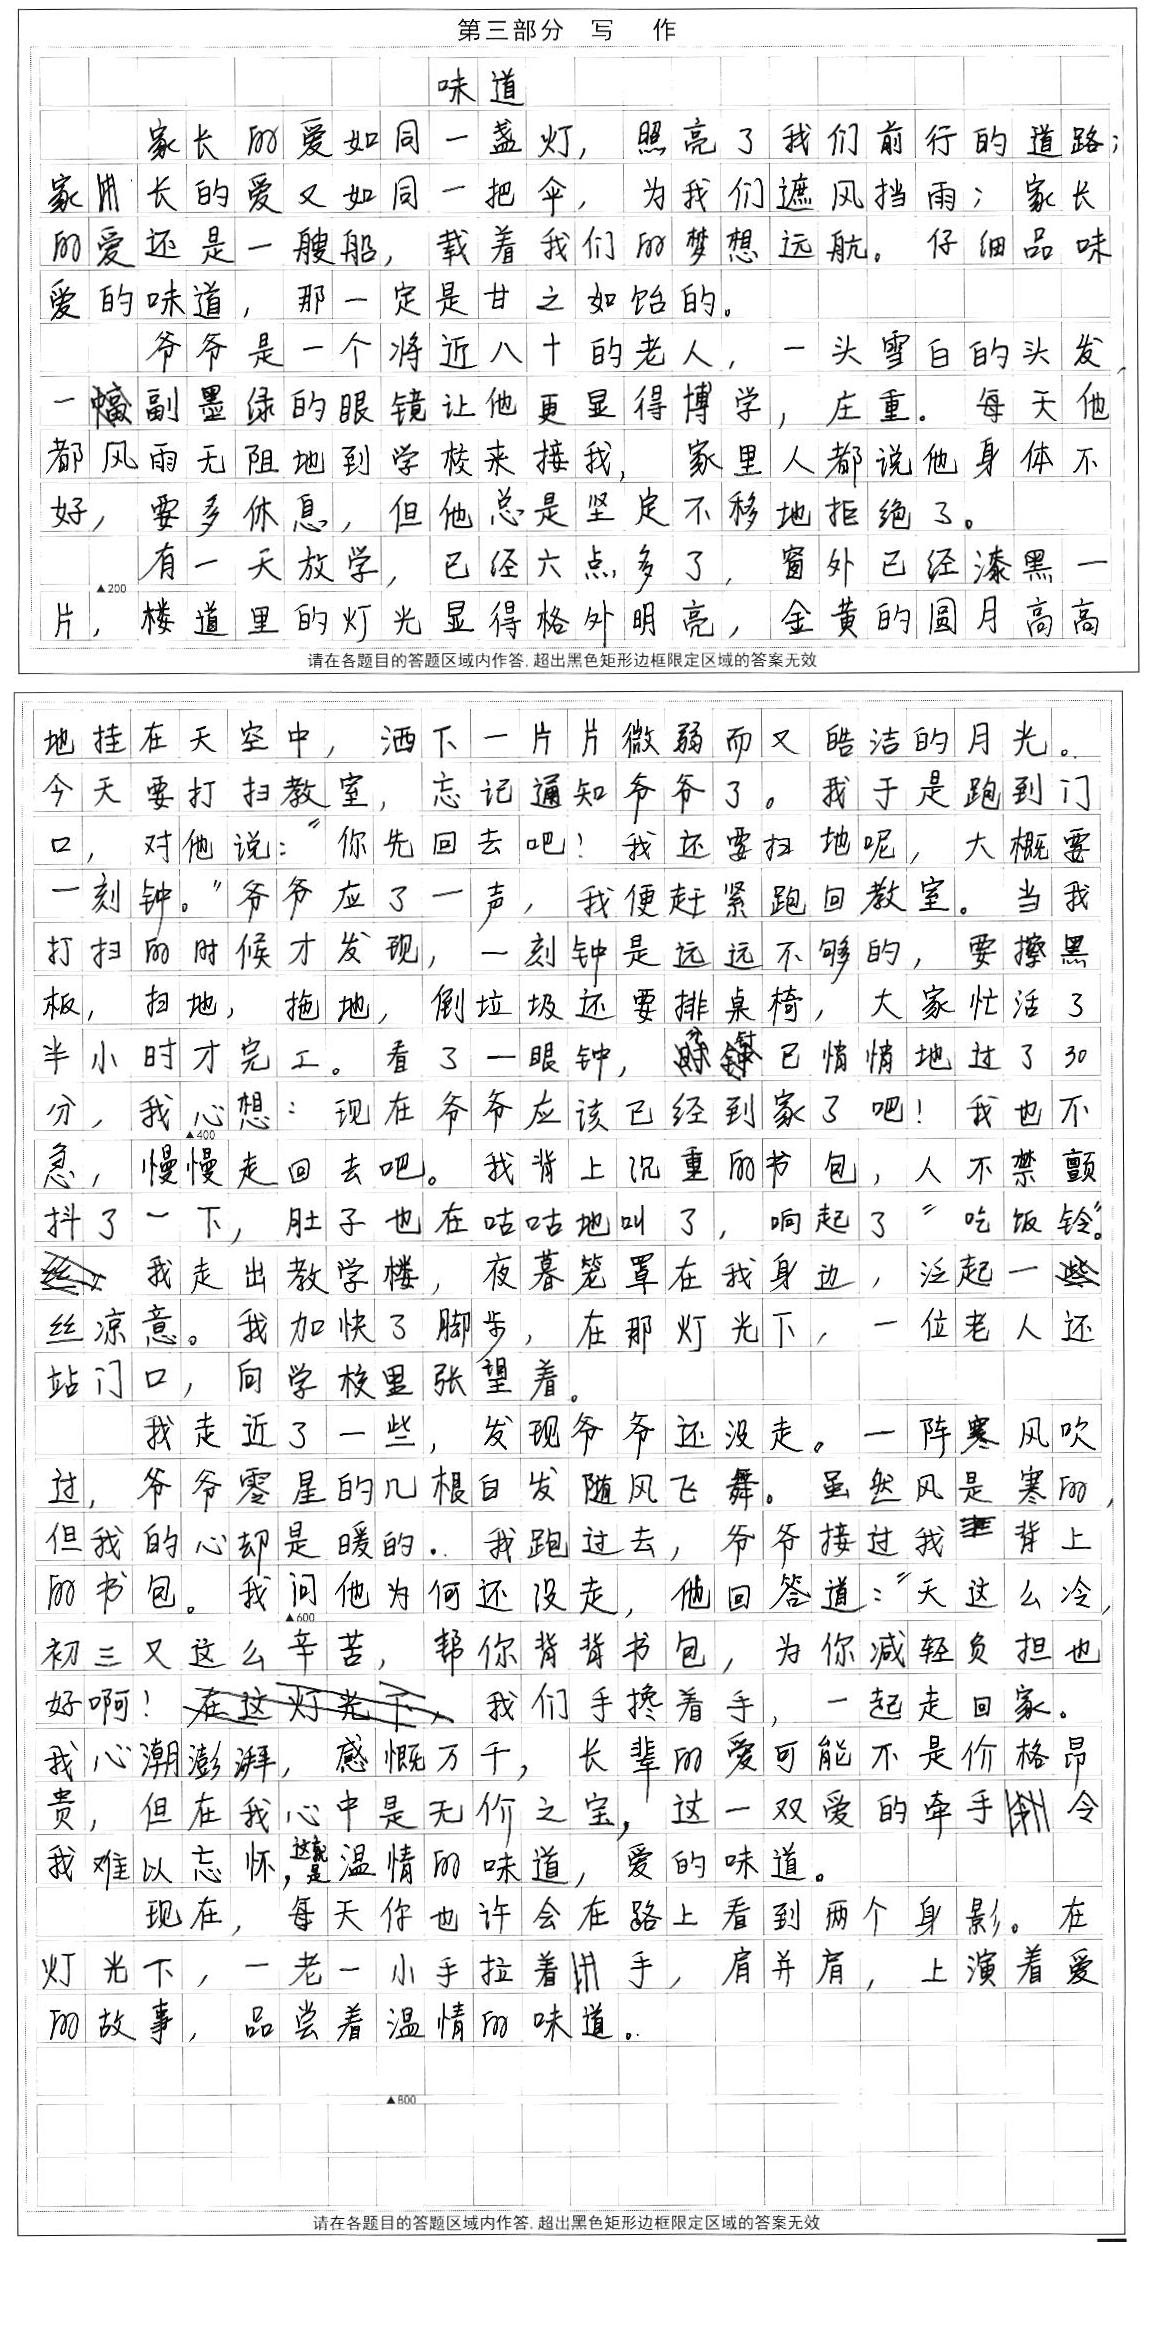 第三部分 写 作
味道
家长的爱如同一盏灯，照亮了我们前行的道路；
家长的爱又如同一把伞，为我们遮风挡雨；家长
的爱还是一艘船，载着我们的梦想远航。仔细品味
爱的味道，那一定是甘之如饴的。
爷爷是一个将近八十的老人，一头雪白的头发，
一副墨绿的眼镜让他更显得博学，庄重。每天他
都风雨无阻地到学校来接我，家里人都说他身体不
好，要多休息，但他总是坚定不移地拒绝了。
有一天放学，已经六点多了，窗外已经漆黑一
▲200
片，楼道里的灯光显得格外明亮，金黄的圆月高高
请在各题目的答题区域内作答,超出黑色矩形边框限定区域的答案无效
地挂在天空中，洒下一片片微弱而又皓洁的月光。
今天要打扫教室，忘记通知爷爷了。我于是跑到门
口，对他说：“你先回去吧！我还要扫地呢，大概要
一刻钟。”爷爷应了一声，我便赶紧跑回教室。当我
打扫的时候才发现，一刻钟是远远不够的，要擦黑
板，扫地，拖地，倒垃圾还要排桌椅，大家忙活了
半小时才完工。看了一眼钟，分针已悄悄地过了30
分，我心想：现在爷爷应该已经到家了吧！我也不
▲400
急，慢慢走回去吧。我背上沉重的书包，人不禁颤
抖了一下，肚子也在咕咕地叫了，响起了“吃饭铃”。
我走出教学楼，夜暮笼罩在我身边，泛起一
丝凉意。我加快了脚步，在那灯光下，一位老人还
站门口，向学校里张望着。
我走近了一些，发现爷爷还没走。一阵寒风吹
过，爷爷零星的几根白发随风飞舞。虽然风是寒的，
但我的心却是暖的。我跑过去，爷爷接过我背上
的书包。我问他为何还没走，他回答道：“天这么冷，
▲600
初三又这么辛苦，帮你背背书包，为你减轻负担也
好啊！我们手搀着手，一起走回家。
我心潮澎湃，感慨万千，长辈的爱可能不是价格昂
贵，但在我心中是无价之宝，这一双爱的牵手令
我难以忘怀，这就是温情的味道，爱的味道。
现在，每天你也许会在路上看到两个身影。在
灯光下，一老一小手拉着手，肩并肩，上演着爱
的故事，品尝着温情的味道。
▲800
请在各题目的答题区域内作答,超出黑色矩形边框限定区域的答案无效